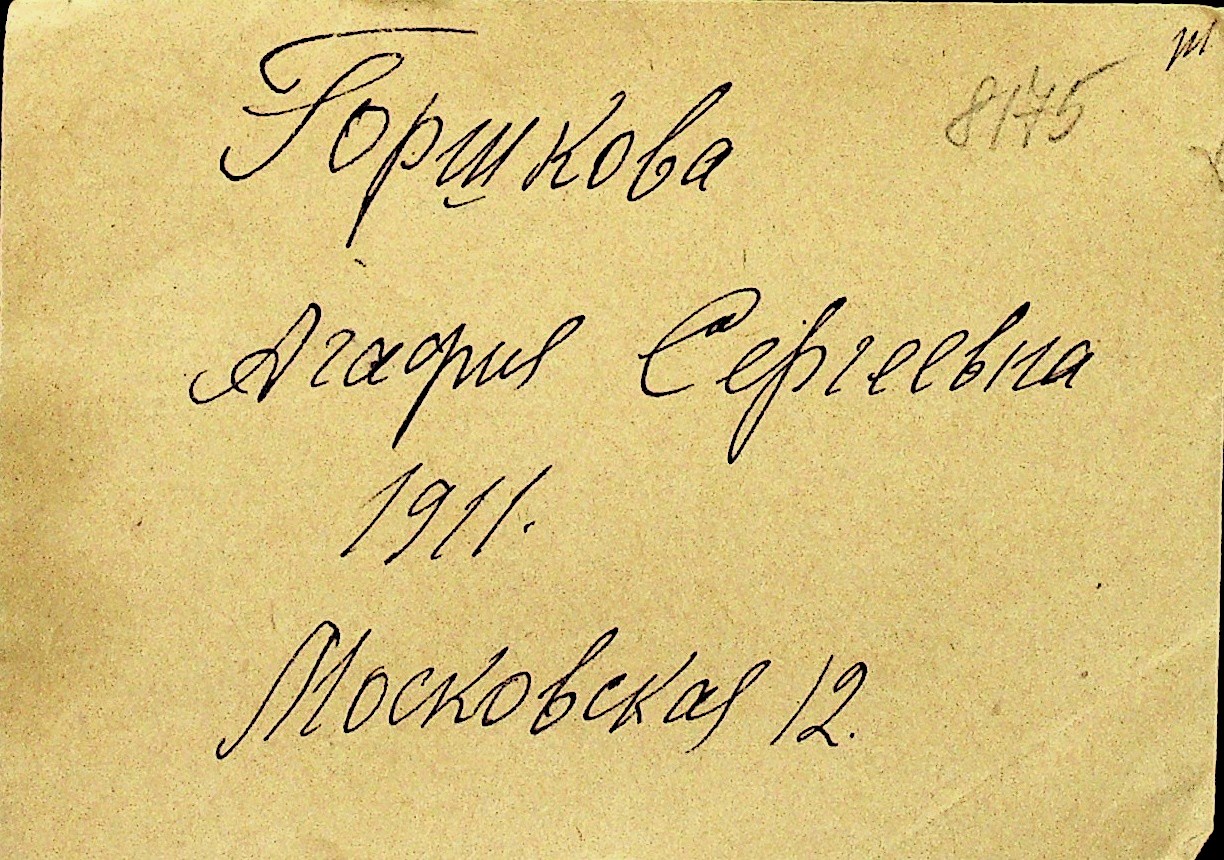 8175
Горшкова
Агафия Сергеевна
1911.
Московская 12.